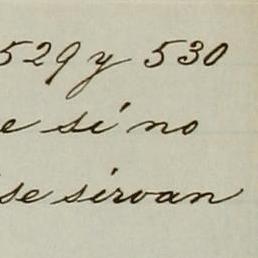 529 y 530
e si no
se sirvan